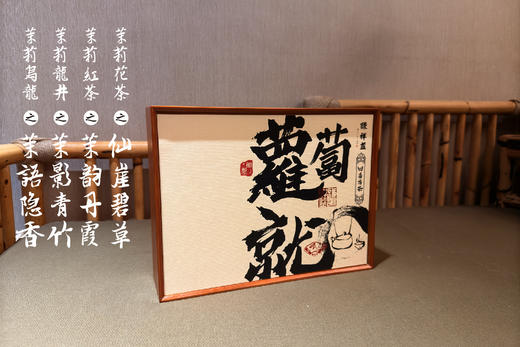 茉莉花茶之仙崖碧草
茉莉紅茶之茉韵丹霞
茉莉龍井之茉影青竹
茉莉烏龍之茉語隐香
謙祥益
蘿蔔就